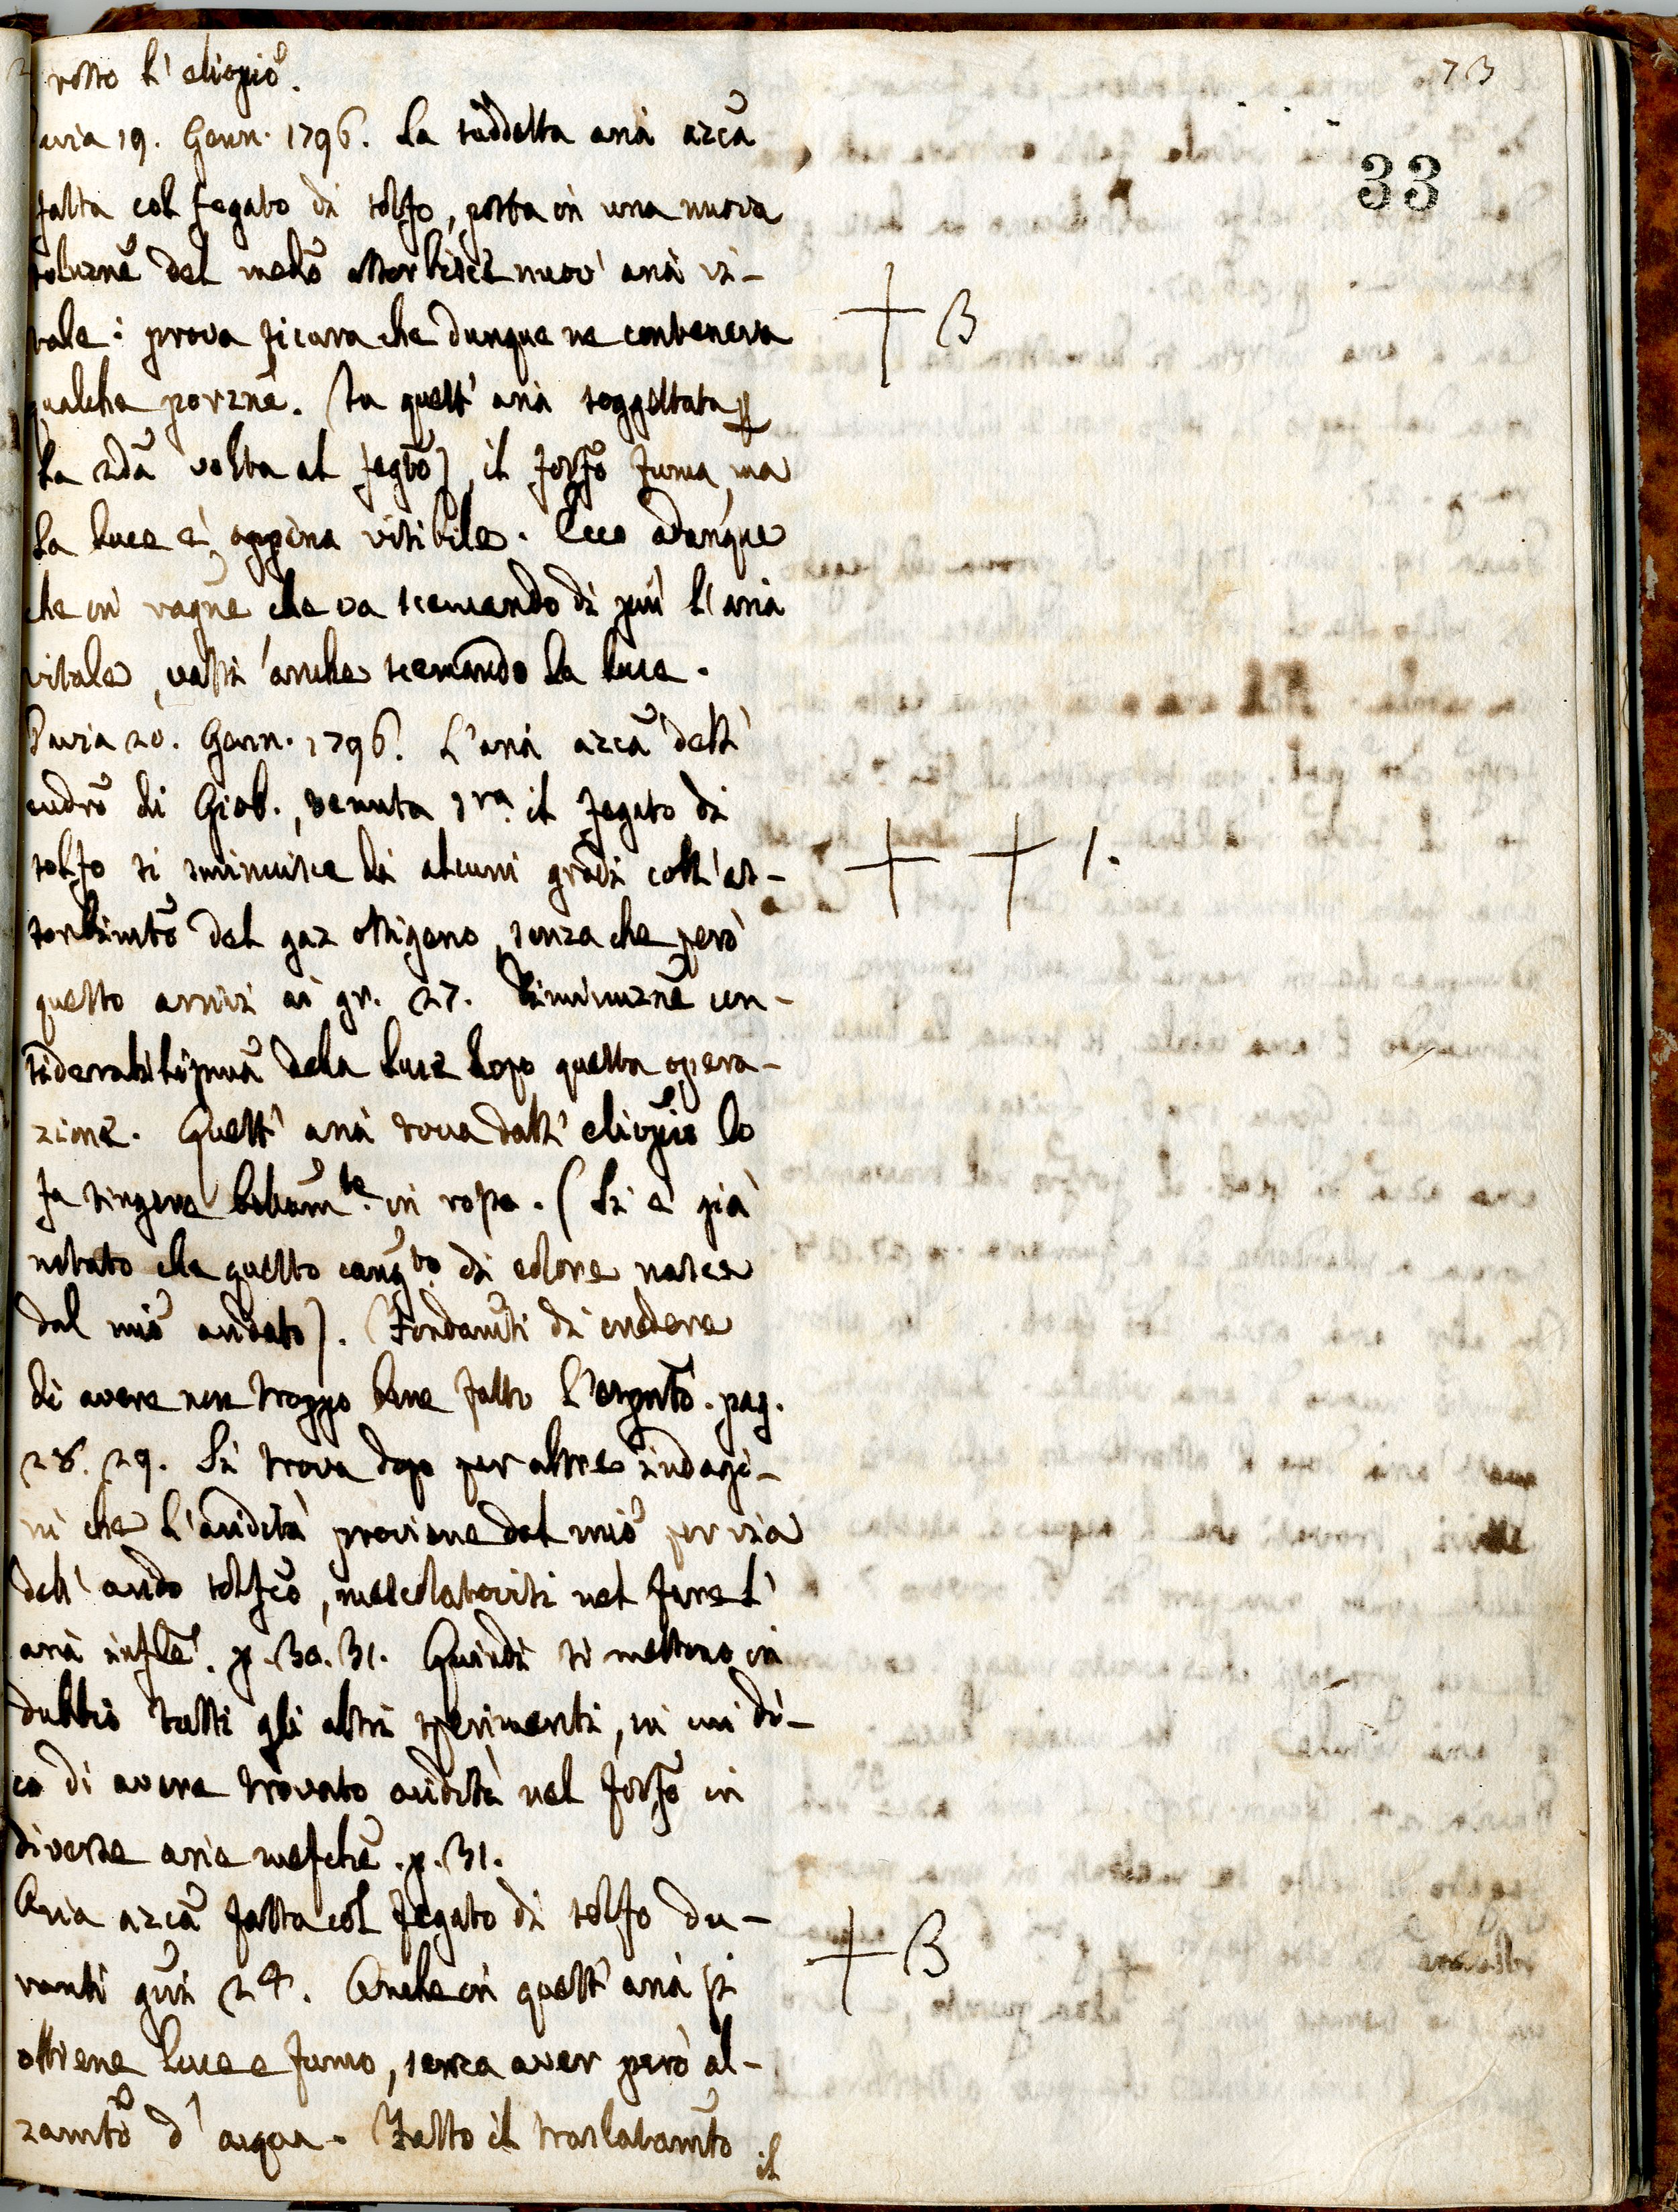 73
33
rosso l'eliopiõ.
Pavia 19. Genn. 1796. La suddetta aria azcã
fatta col fegato di solfo, posta in una nuova
soluznẽ del medõ assorbisce nuov' aria vi-
tale: prova sicura che dunque ne conteneva
qualche porznẽ. In quest' aria soggettata p
la 2dã volta al fegtõ), il fosfõ fuma, ma
la luce è appena visibile. Ecco adunque
che in ragnẽ che va scemando di più l'aria
vitale, vassi anche scemando la luce.
Pavia 20. Genn. 1796. L'aria azcã dell'
eudrõ di Giob., tenuta sra. il fegato di
solfo si sminuisce di alcuni gradi coll'as-
sorbimtõ del gaz ossigeno, senza che però
questo arrivi ai gr. 27. Diminuznẽ con-
siderabilissimã della luce dopo questa opera-
zione. Quest' aria dove dall' eliopio lo
fa tingere bellam̃te. in rosso. (Si è già
notato che questo cangto. di colore nasce
dal miõ acidato). Fondam̃ti di credere
di avere non troppo bene fatto l'espmtõ. pag.
28. 29. Si trova dopo per altre indagi-
ni che l'acidità proviene dal miõ per via
dell' acido solfcõ, mescolatovisi nel fare l'
aria inflẽ. p. 30. 31. Quindi si mettono in
dubbio tutti gli altri sperimenti, in cui di-
co di avere trovato acidità nel fosfõ in
diverse arie mefchẽ. p. 31.
Aria azcã fatta col fegato di solfo du-
ranti gni 24. Anche in quest' aria si
ottiene luce e fumo, senza aver però al-
zamtõ d' acqua. Fatto il traslatamtõ
il
+ B
+ + 1.
+ B